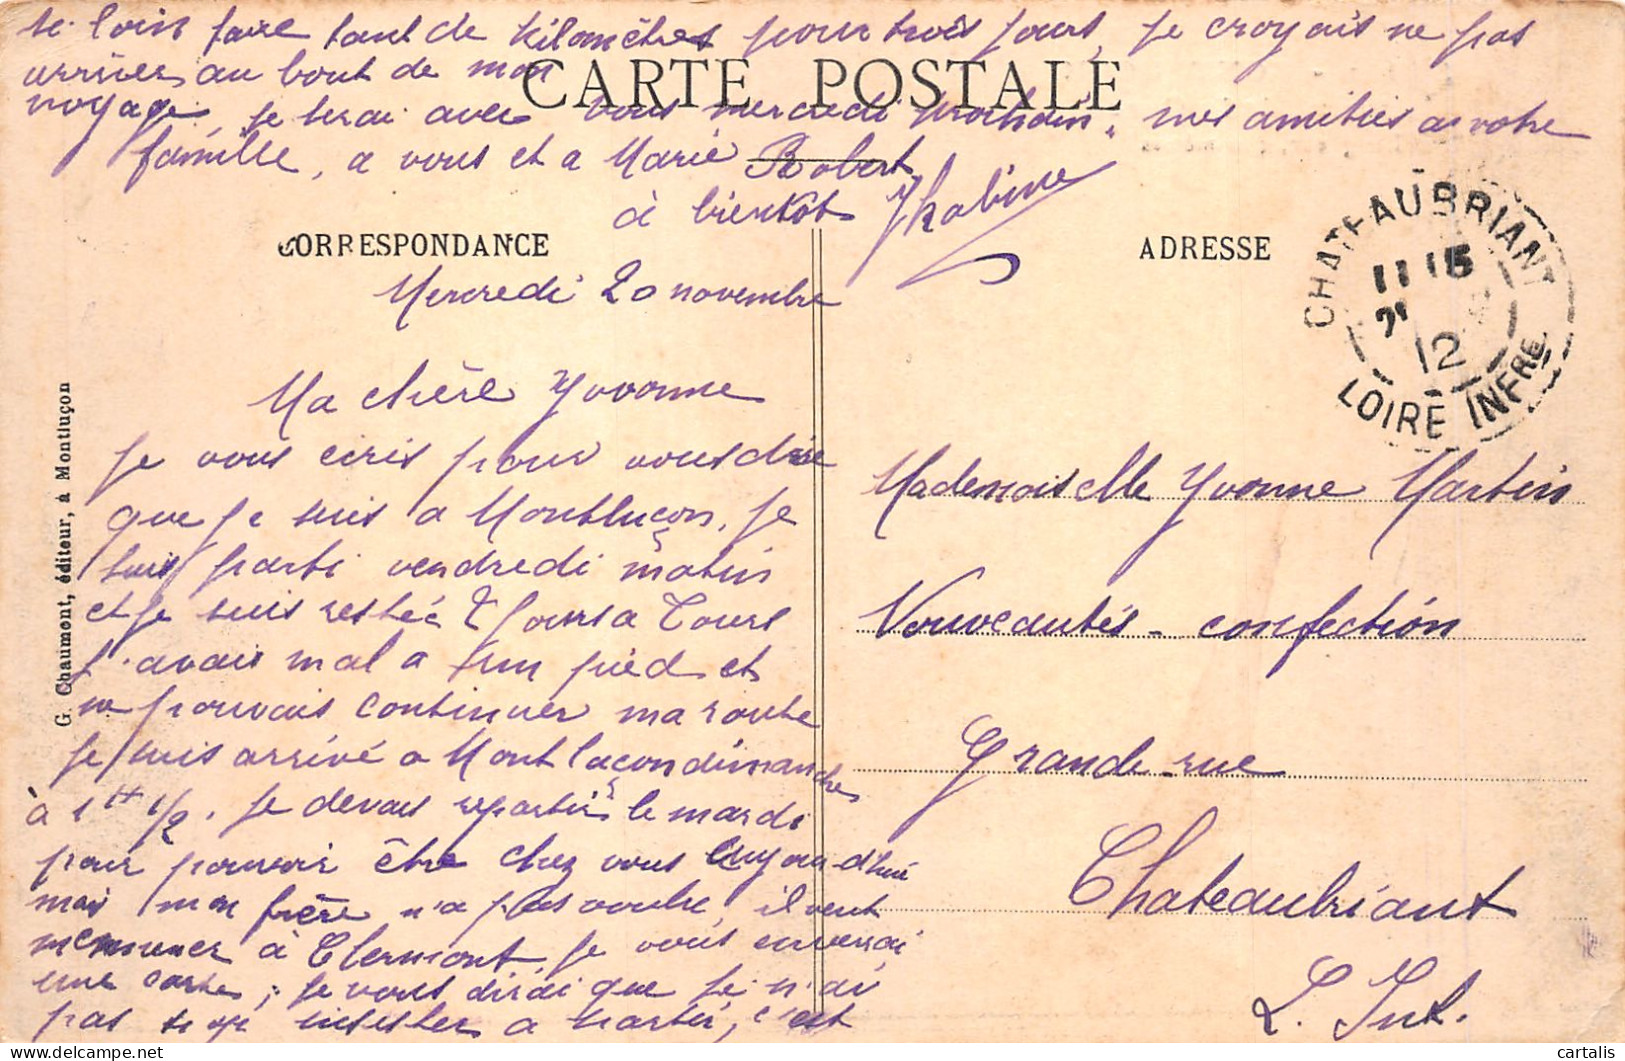 si loin faire tant de kilomètres pour trois jours, je croyais ne pas
arriver au bout de mon
CARTE POSTALE
voyage, je serai avec vous mercredi prochain, mes amitiés a votre
famille, a vous et a Marie Robert
à bientôt
CORRESPONDANCE
ADRESSE
CHATEAUBRIANT
11 15
12
LOIRE INFRE
Mercredi 20 novembre
Ma chère Yvonne
je vous écris pour vous dire
que je suis a Montluçon, je
suis parti vendredi matin
et je suis resté 2 jours a Tours
j'avais mal a un pied et
ne pouvais continuer ma route
je suis arrivé a Montluçon dimanche
à 1H 1/2. je devais repartir le mardi
pour pouvoir être chez vous aujourd'hui
mais mon frère n'a pas voulu, il veut
m'emmener à Clermont, je vous enverrai
une carte, je vous dirai que je n'ai
pas trop insister a partir, c'est
G. Chaumont, éditeur, à Montluçon
Mademoiselle Yvonne Martin
Nouveautés - confection
Grande rue
Chateaubriant
L. Inf.
cartalis